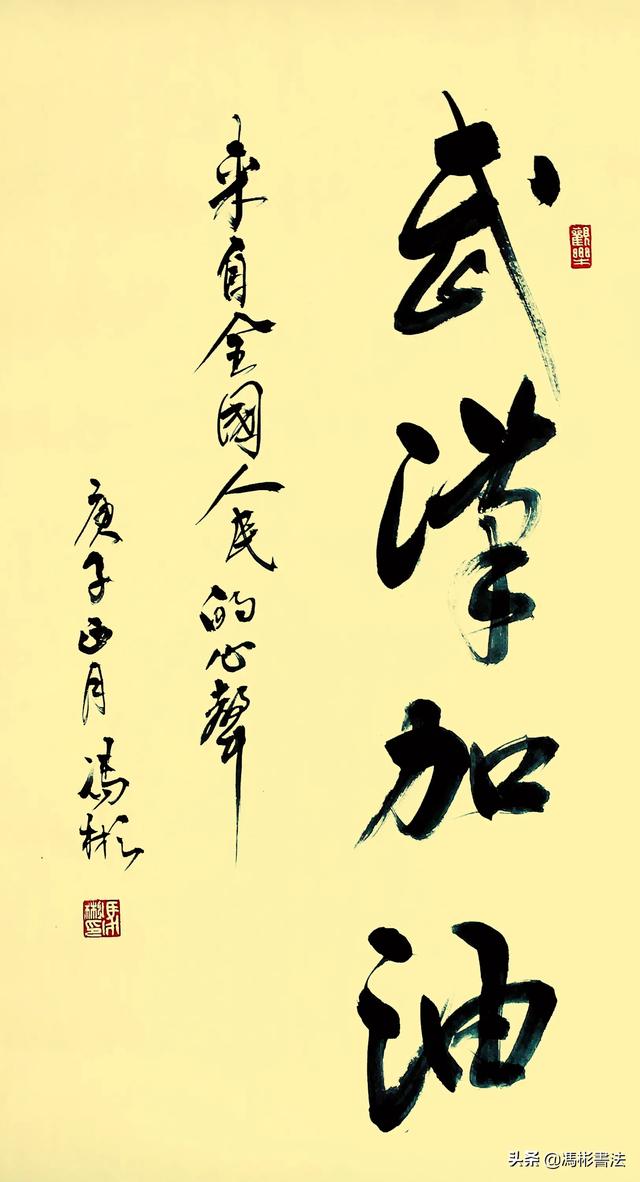 武漢加油
来自全國人民的心聲
庚子正月 馮彬
头条 @馮彬書法